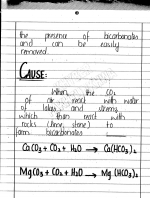 the presence of bicarbonates
and can be easily
removed.
CAUSE:
When the CO2
of air react with water
of lakes and streams
which than react with
rocks (lime, stone) to
form bicarbonates
CaCO3 + CO2 + H2O → Ca(HCO3)2
MgCO3 + CO2 + H2O → Mg(HCO3)2